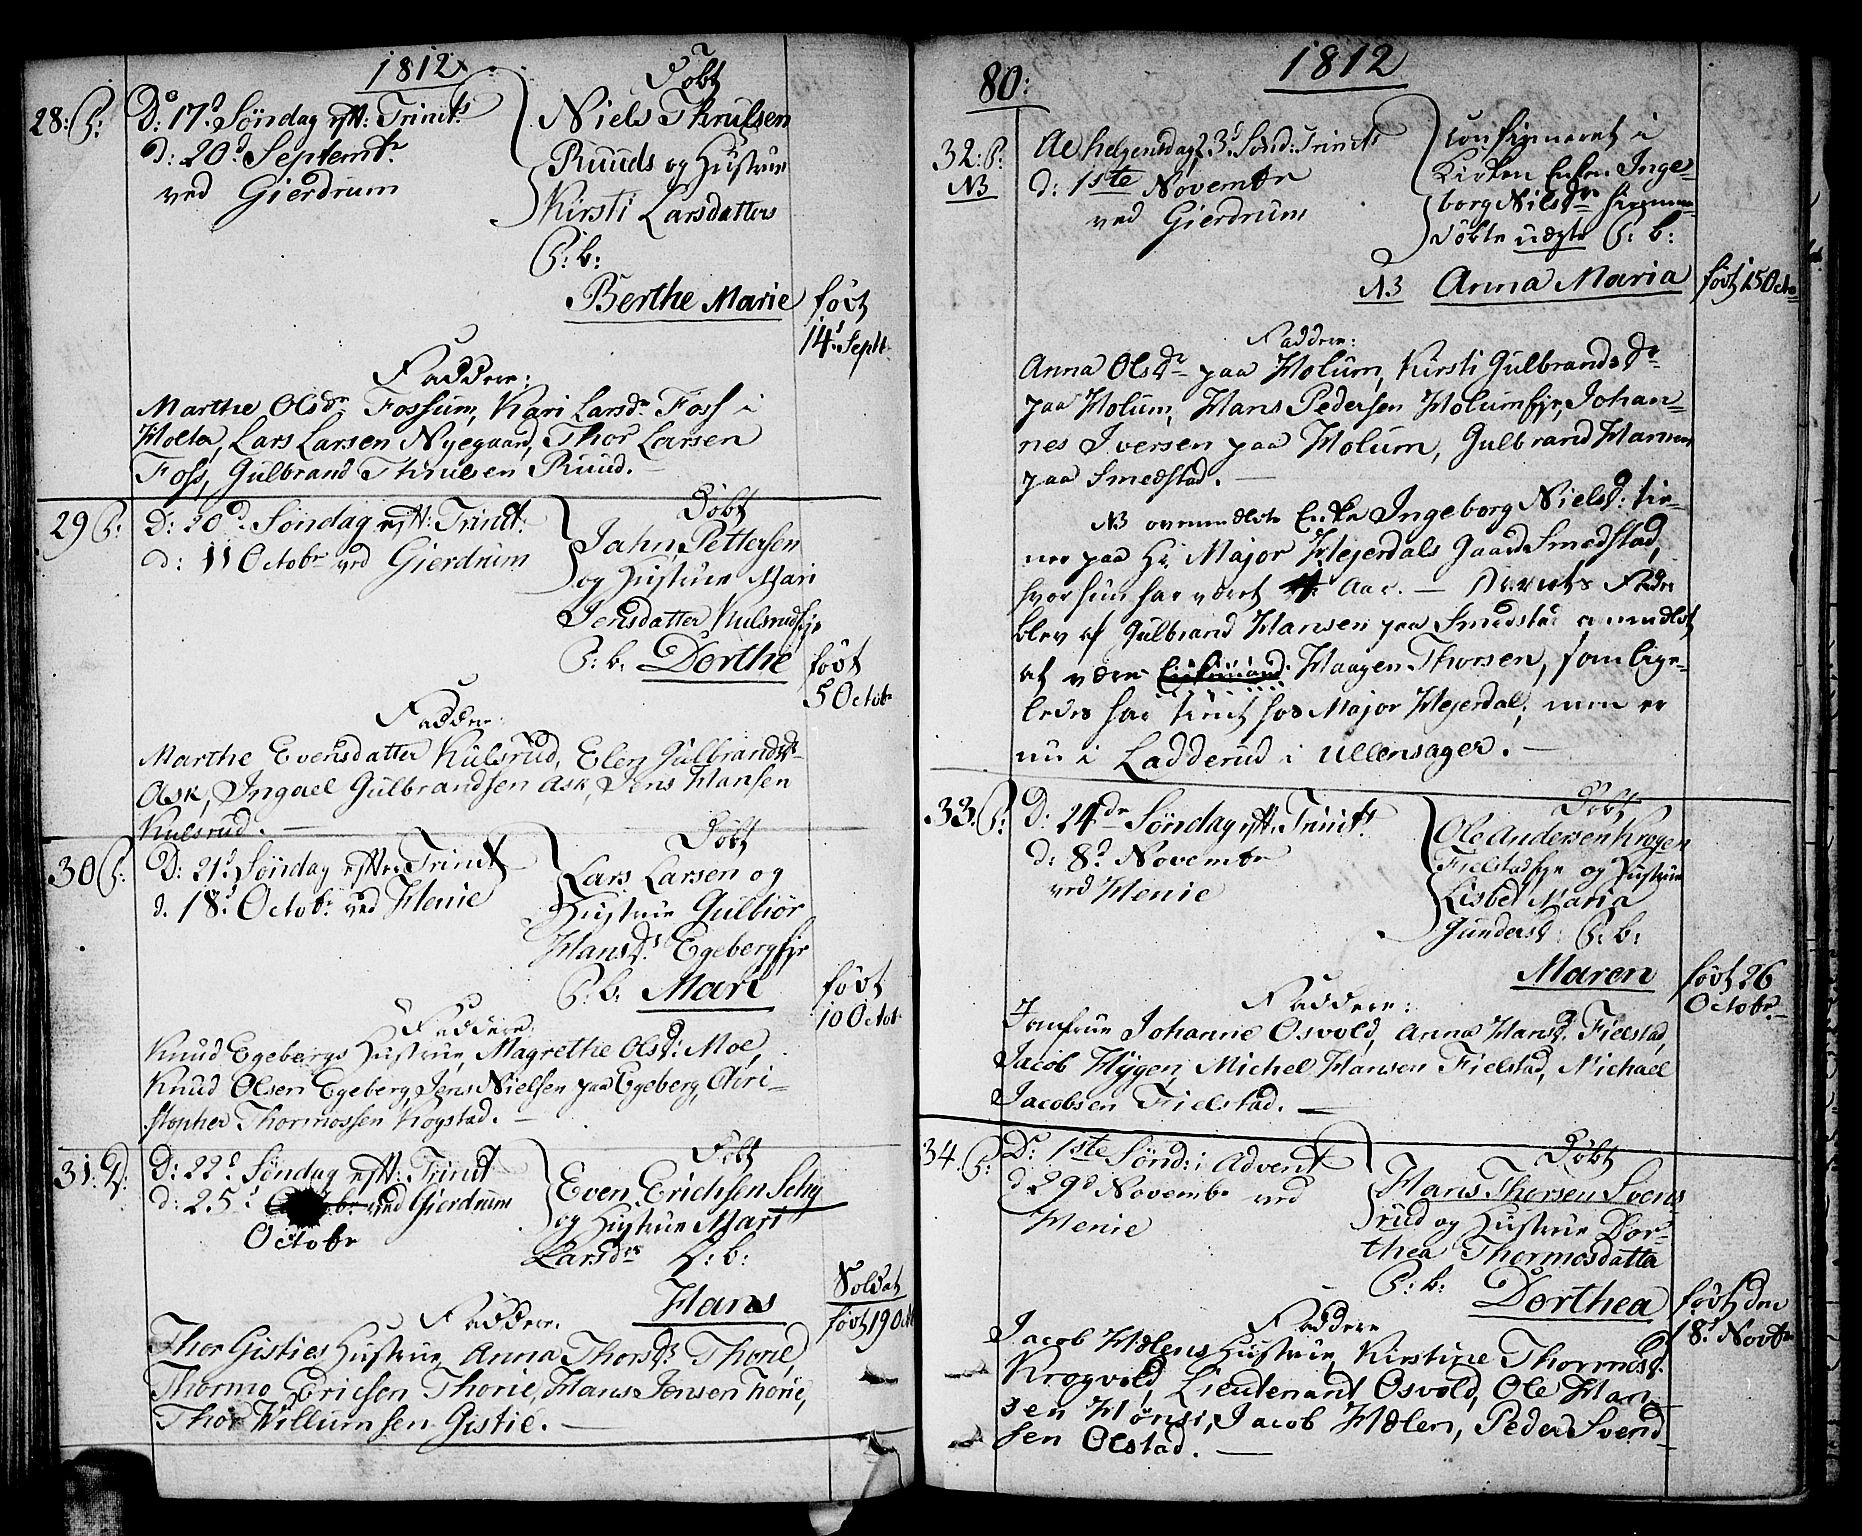 1812
28: P:
D: 17d Søndag eft: Trinit:
d: 20d Septemb:
ved Gierdrum
Døbt
Niels Thrulsen
Ruuds og Hustrue
Kirsti Larsdatters
P: b:
Berthe Marie
født
14d Septb
Faddere:
Marthe Olsdr Fossum, Kari Larsdr Foss i
Holter, Lars Larsen Nyegaard, Thor Larsen
Foss, Gulbrand Thrulsen Ruud. —
29 P:
D: 20d Søndag eft: Trinit:
d: 11 Octobr ved Gierdrum
Døbt
Jahn Pettersen
og Hustrue Mari
Jensdatter Kulsrudejr
P: b. Dorthe
født
5 Octobr
Faddere:
Marthe Evensdatter Kulsrud, Elen Gulbrandsdr
Ask, Ingael Gulbrandsen Ask, Jens Hansen
Kulsrud. —
30 P:
D: 21d Søndag efter Trinit
d. 18d Octobr ved Henie
Døbt
Lars Larsen og
Hustrue Gulbiør
Hansdr Egebergejr
P: b. Mari
født
10 Octobr
Faddere:
Knud Egebergs Hustrue, Magrethe Olsdr Moe,
Knud Olsen Egeberg, Jens Nielsen paa Egeberg, Chri-
stopher Thormossen Kogstad. —
31. D:
D: 22d Søndag eft: Trinit
d: 25d ved Gierdrum
Octobr
Døbt
Even Erichsen
og Hustrue Mari
Larsdr D: b:
Hans
Soldat
født 19 Oct
Faddere.
Thor Gisties Hustrue, Anna Thorsdr Thorie,
Thormo Ericsen Thorie, Hans Jensen Torie,
Thor Willumsen Gistie. —
80:
1812
32: P:
NB
Allehelgensdag 23d Sønd: Trinit:
d: 1ste Novembr
ved Gierdrum
Confirmeret i
Kirken Enken Inge-
borg Nilsdr hiemme-
døbte uægte P: b:
NB Anna Maria
født 15 Octobr
Faddere:
Anna Olsdr paa Holum, Kirsti Gulbrandsdr
paa Holum, Hans Pedersen Holumejr, Johan-
nes Iversen paa Holum, Gulbrand Hansen
paa Smedstad. —
NB ovenmeldte Enke Ingeborg Nielsd: tie-
ner paa Hr Major Hejerdals Gaard Smedstad,
hvor hun har været Aar. — Barnets Fader
blev af Gulbrand Hansen paa Smedstad anmeldet
at være Haagen Thorsen, som lige-
ledes har tient hos Major Hejerdal, men er
nu i Ladderud i Ullensager. —
33. P:
D: 24de Søndag eft. Trinit:
d: 8d Novembr
ved Henie
Døbt
Ole Andersen Krogen
Fielstadejr og Hustrue
Lisbet Maria
Gundersd: P: b:
Maren
født 26
Octobr
Faddere:
Jomfrue Johanne Osvold, Anna Hansd. Fielstad,
Jacob Hygen, Michel Hansen Fielstad, Michael
Jacobsen Fielstad. —
34. P:
D: 1ste Sønd: i Advent
d 29d Novembr ved
Henie
Døbt
Hans Thorsen Svens
rud og Hustrue Dor-
thea Thormosdatter
P: b:
Dorthea
født den
18d Novbr
Faddere
Jacob Hælens Hustrue, Kirstine Thormosd.
Krogvold, Lieutenant Osvold, Ole Han-
sen Hønsi, Jacob Hælen, Peder Svend-
sen Olstad. —